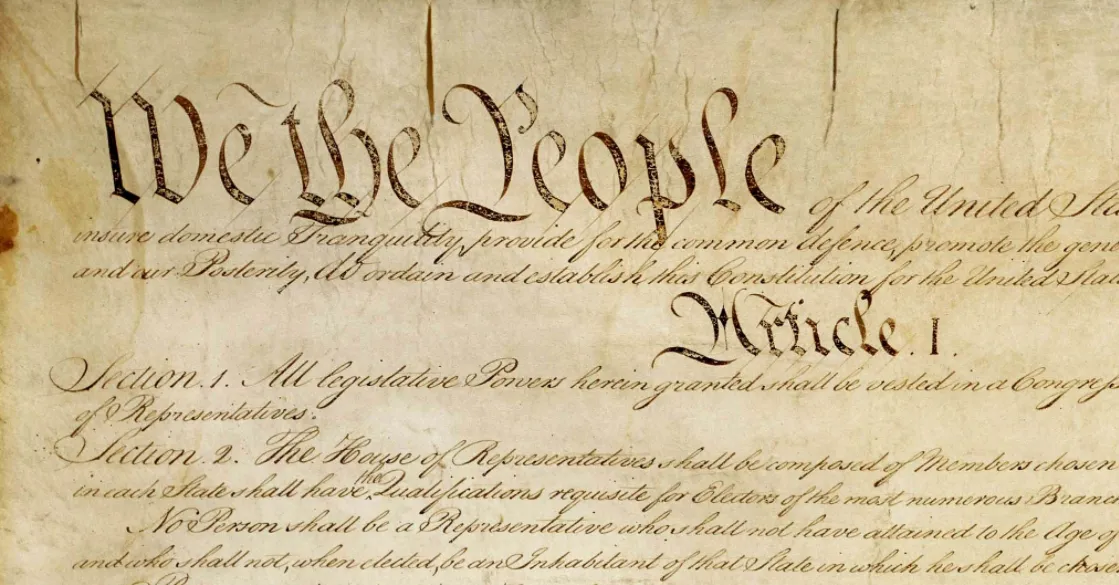 We the People of the United Sta
insure domestic Tranquility, provide for the common defence, promote the gene
and our Posterity, do ordain and establish this Constitution for the United Sta
Article. I.
Section. 1. All legislative Powers herein granted shall be vested in a Congress
of Representatives.
Section. 2. The House of Representatives shall be composed of Members chosen
in each State shall have the Qualifications requisite for Electors of the most numerous Branc
No Person shall be a Representative who shall not have attained to the Age of
and who shall not, when elected, be an Inhabitant of that State in which he shall be chose